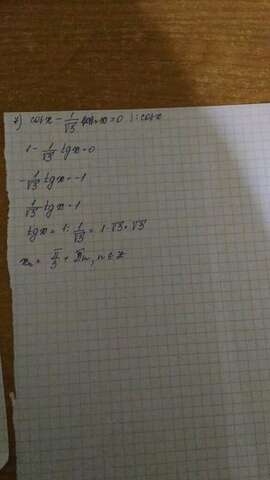 7) cos x - 1/√3 sin x = 0 | : cos x
1 - 1/√3 tg x = 0
- 1/√3 tg x = -1
1/√3 tg x = 1
tg x = 1 : 1/√3 = 1 · √3 = √3
x = π/3 + πn, n ∈ Z